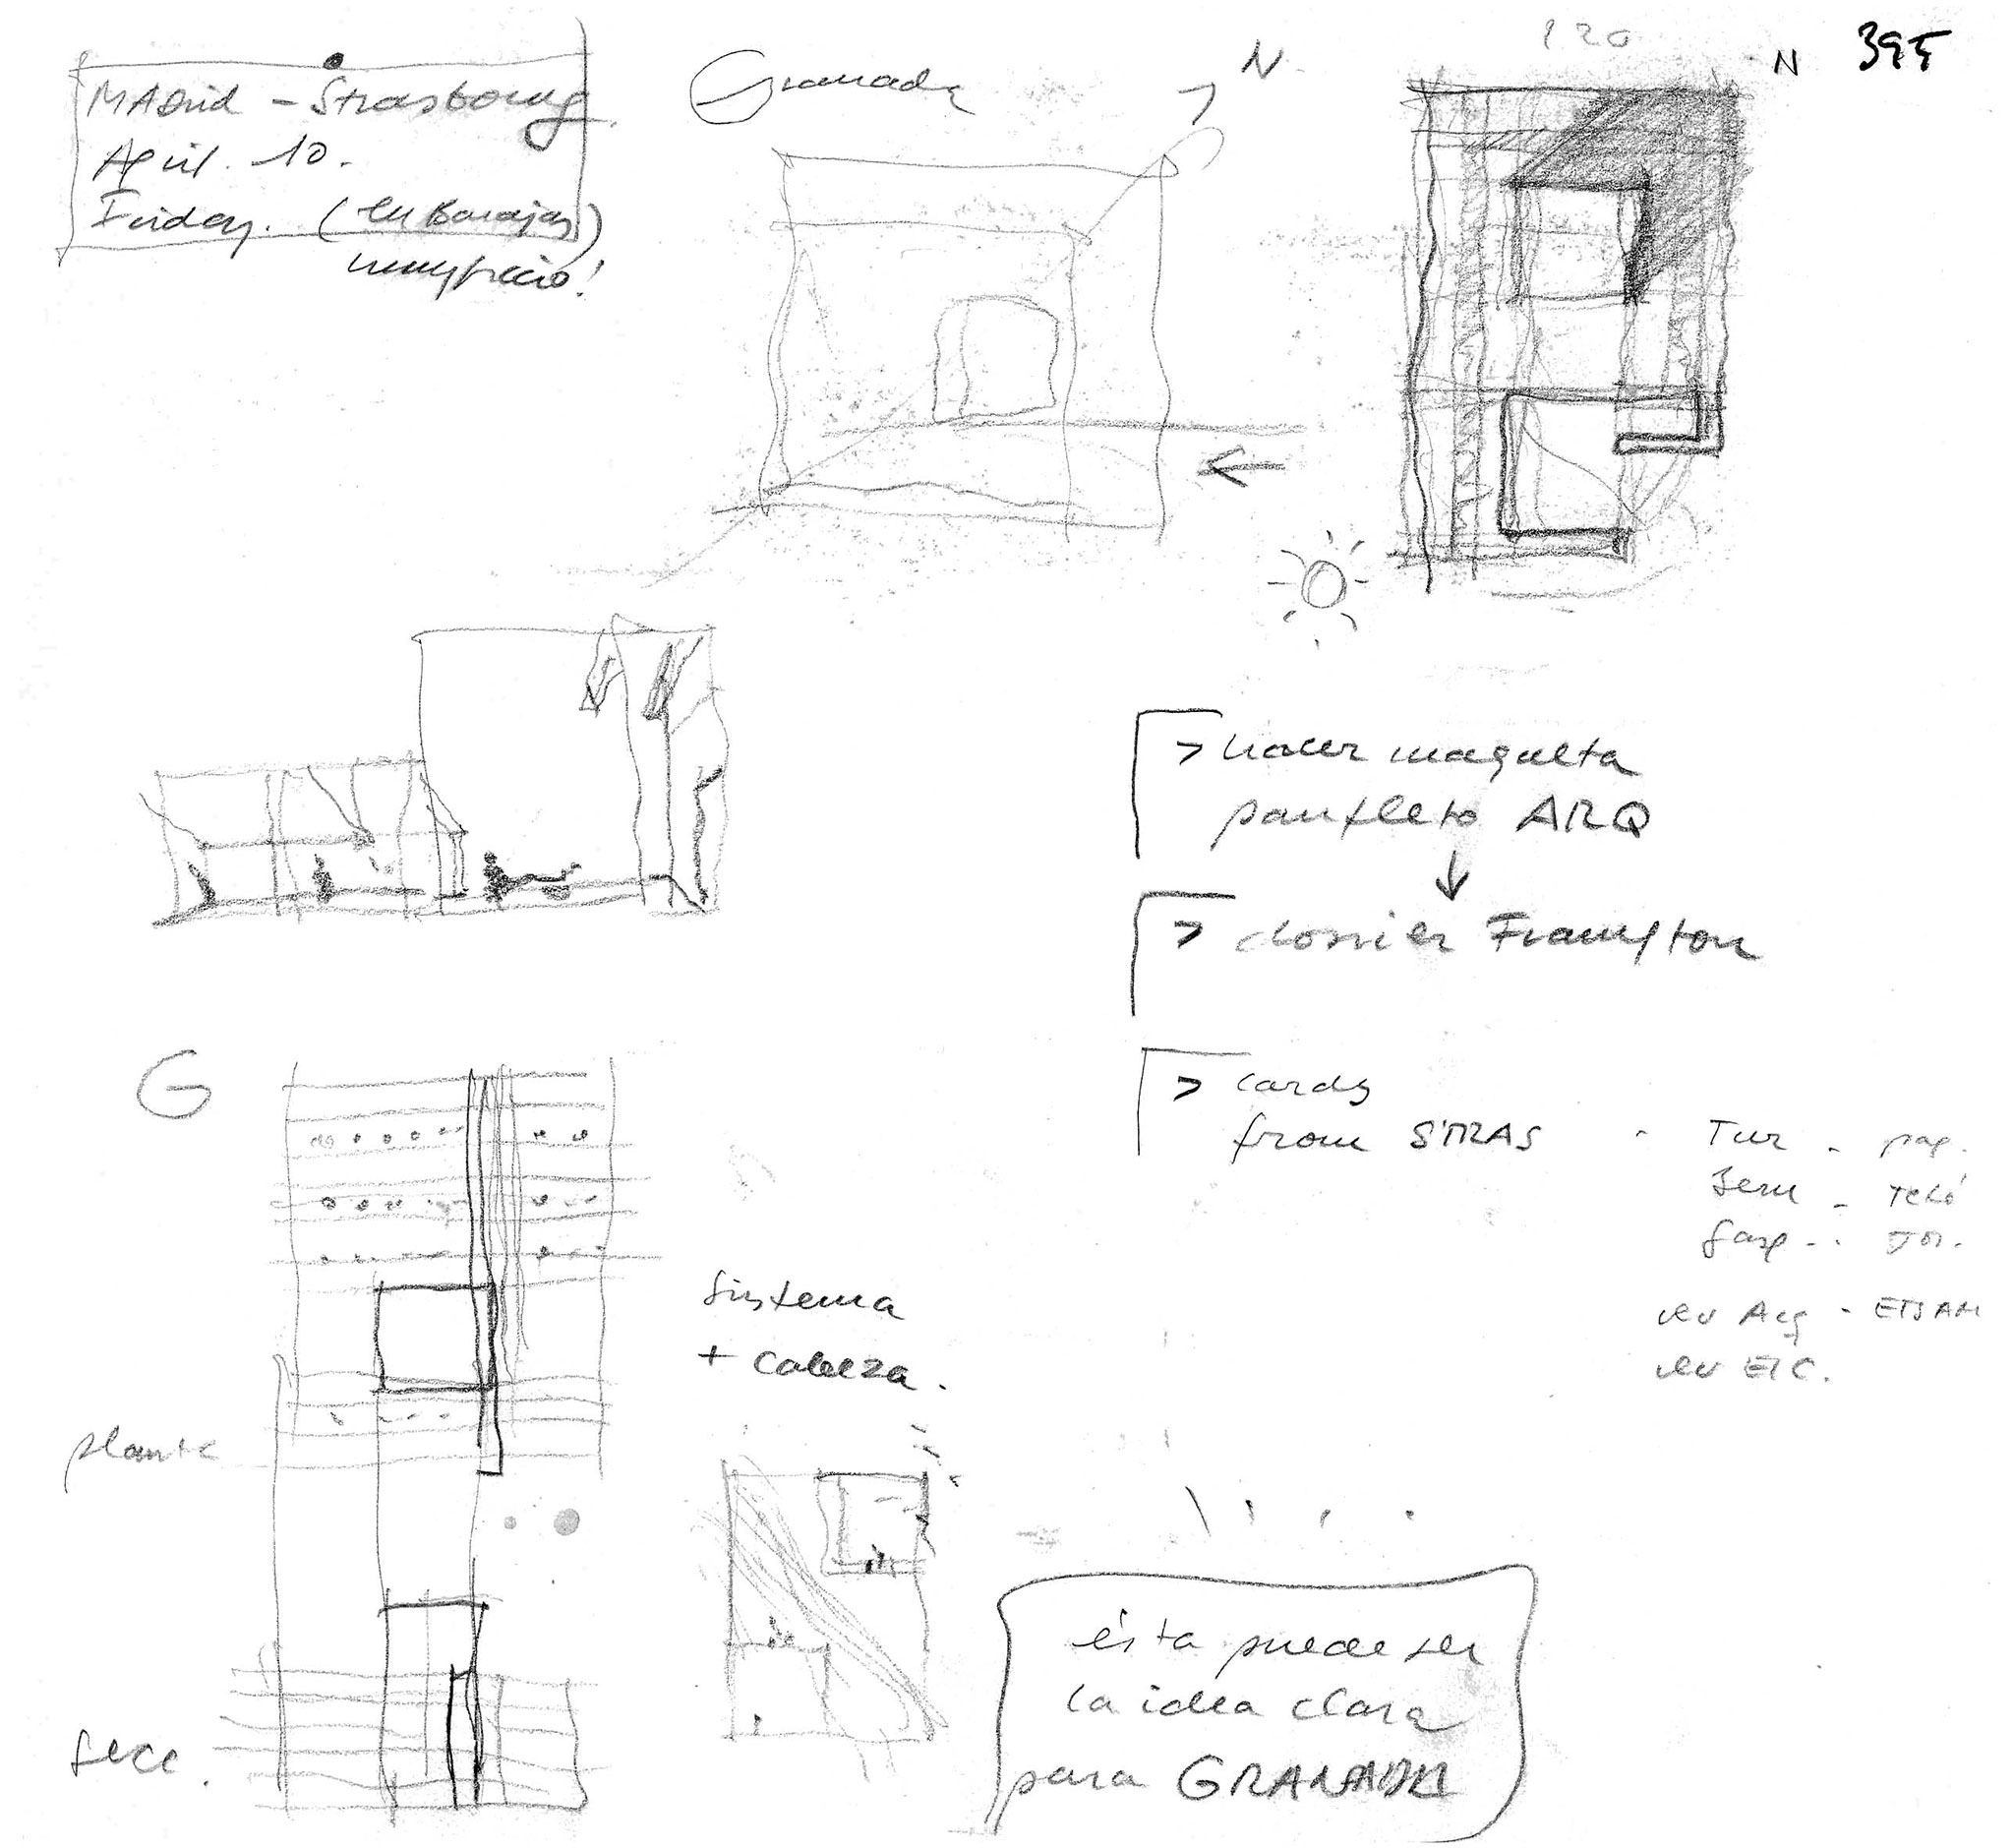 MAdrid - Strasbourg
April. 10.
Friday. (en Barajas)
muy frecio!
Granada
N
120
N
395
> hacer maqueta
panfleto ARQ
> dossier Frampton
> cards
from STRAS
Tur - pap.
- Teló
G
sistema
+ cabeza.
planta
secc.
ver Arq - ETSAM
ver ETC.
ésta puede ser
la idea clara
para GRANADA